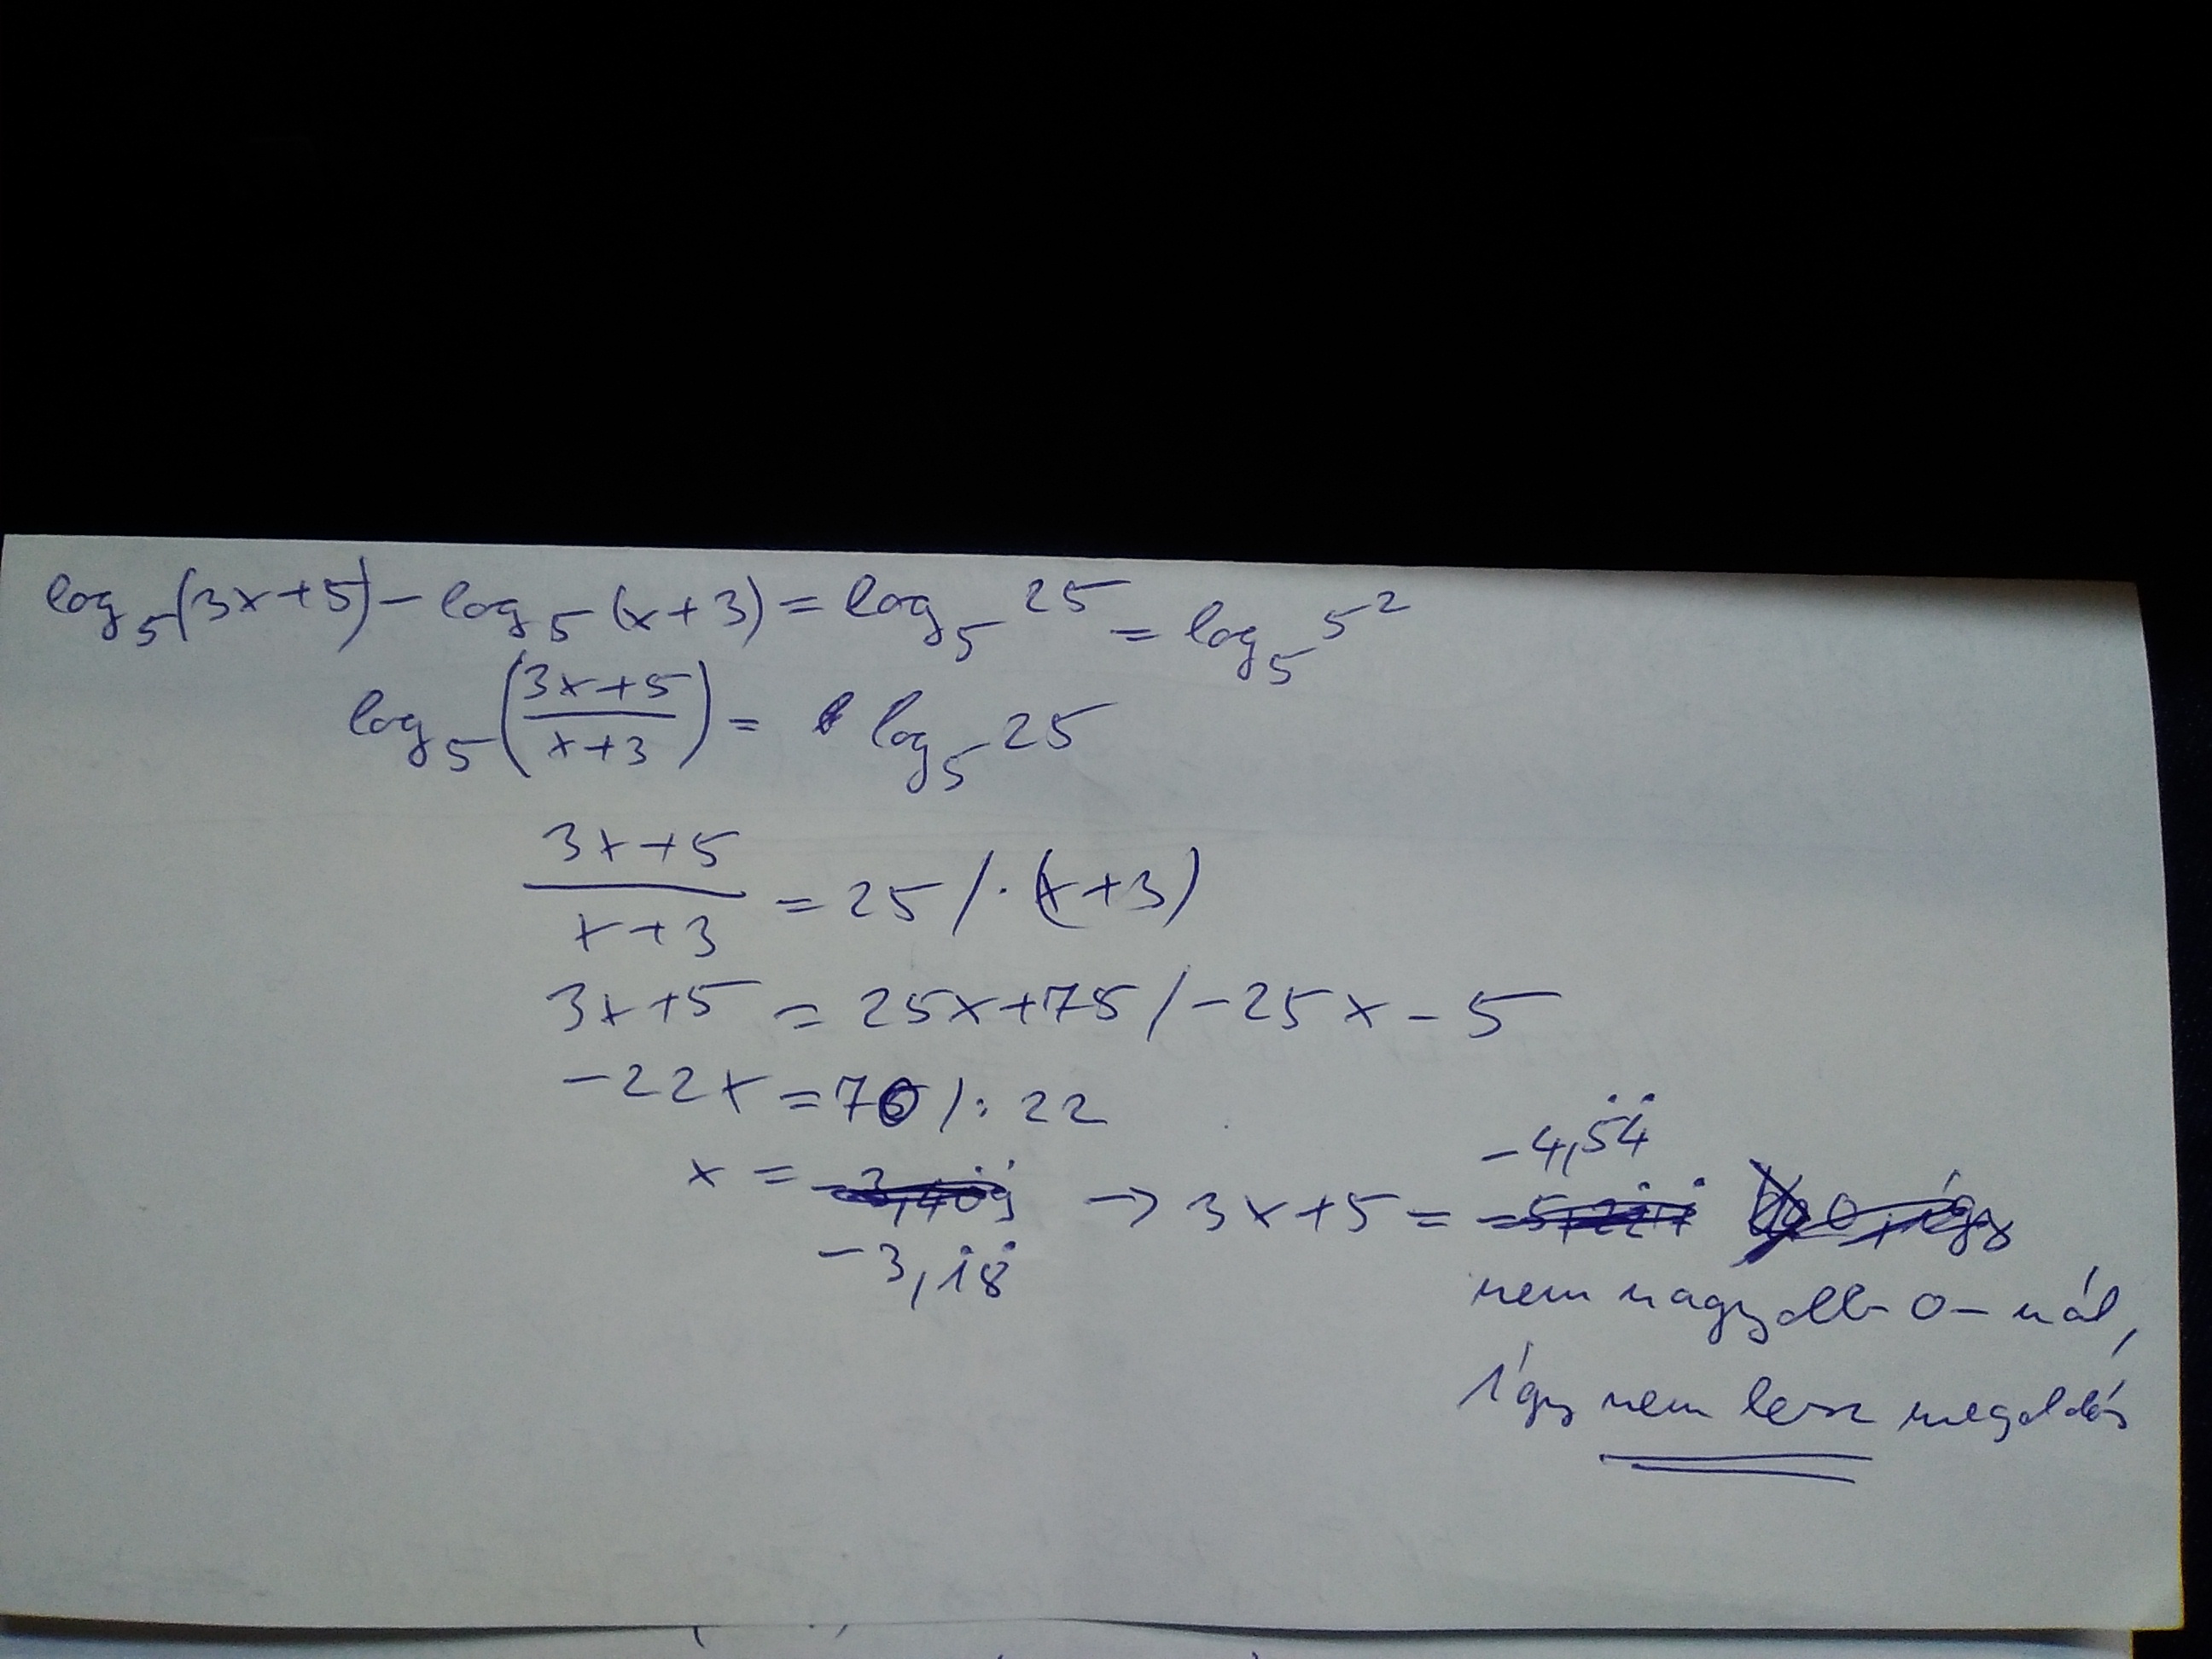 log₅(3x+5)-log₅(x+3)=log₅25=log₅5²
log₅((3x+5)/(x+3))=log₅25
(3x+5)/(x+3)=25/·(x+3)
3x+5=25x+75/-25x-5
-22x=70/:22
x= → 3x+5= -4,5̇4̇
-3,1̇8̇
nem nagyobb 0-nál,
így nem lesz megoldás